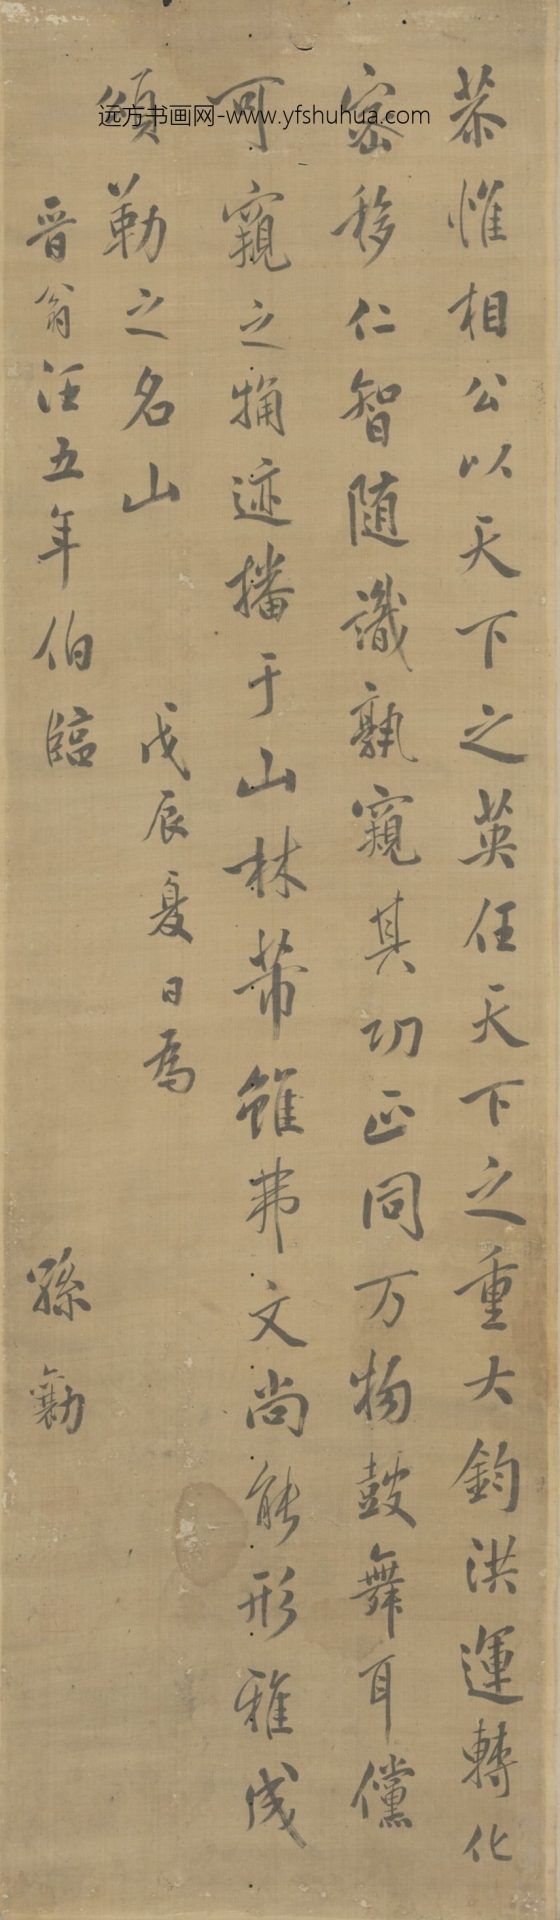 远方书画网-www.yfshuhua.com
恭惟相公以天下之英任天下之重大鈞洪運轉化
密移仁智随識孰窺其功正同万物鼓舞耳儻
可窺之粗迹播于山林芾雖弗文尚能形雅成
頌勒之名山
戊辰夏日為
晋翁汪五年伯臨
孫勷